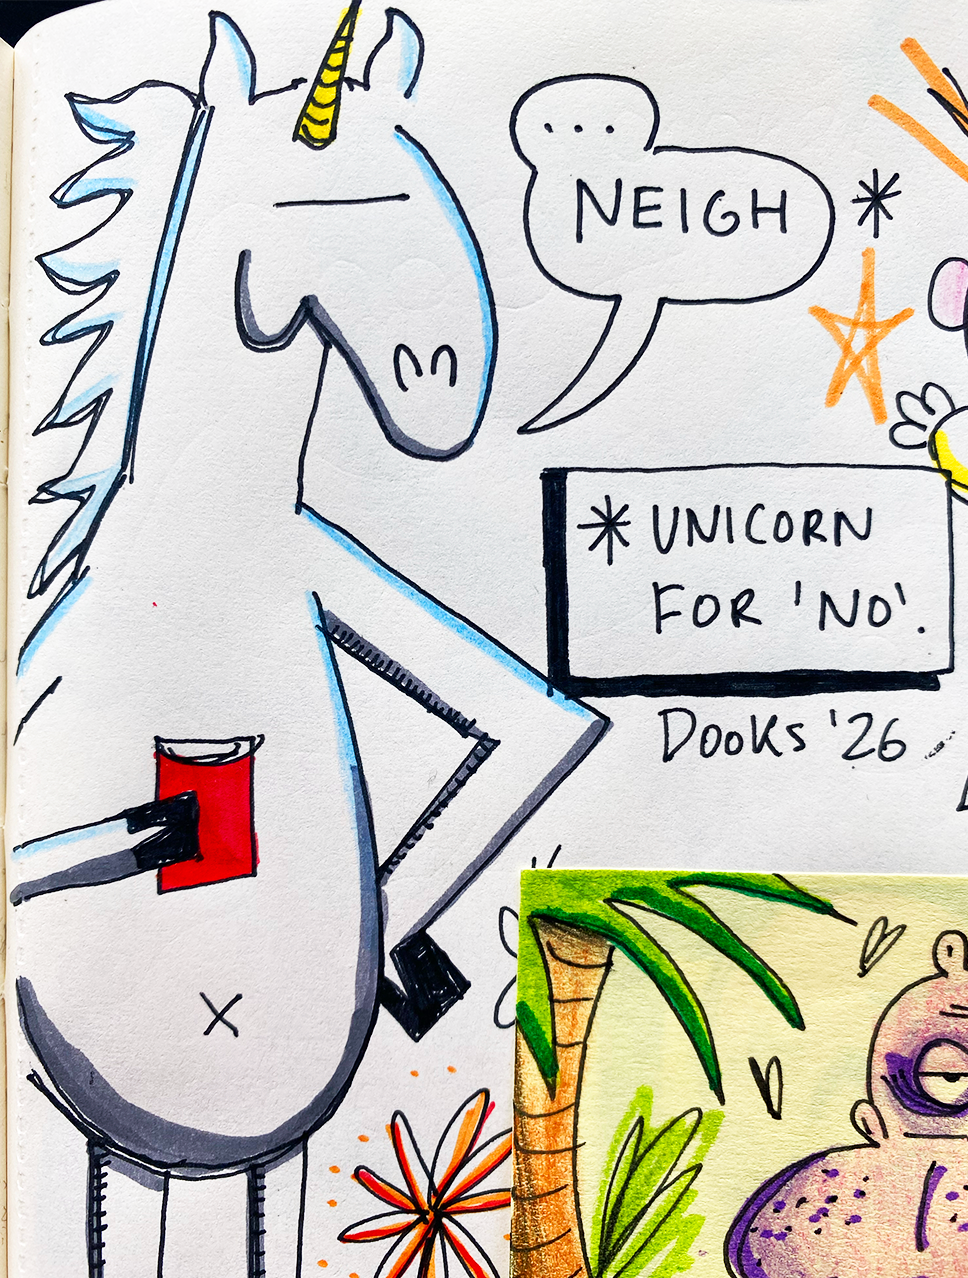 ...
NEIGH *
* UNICORN
FOR 'NO'.
Dooks '26